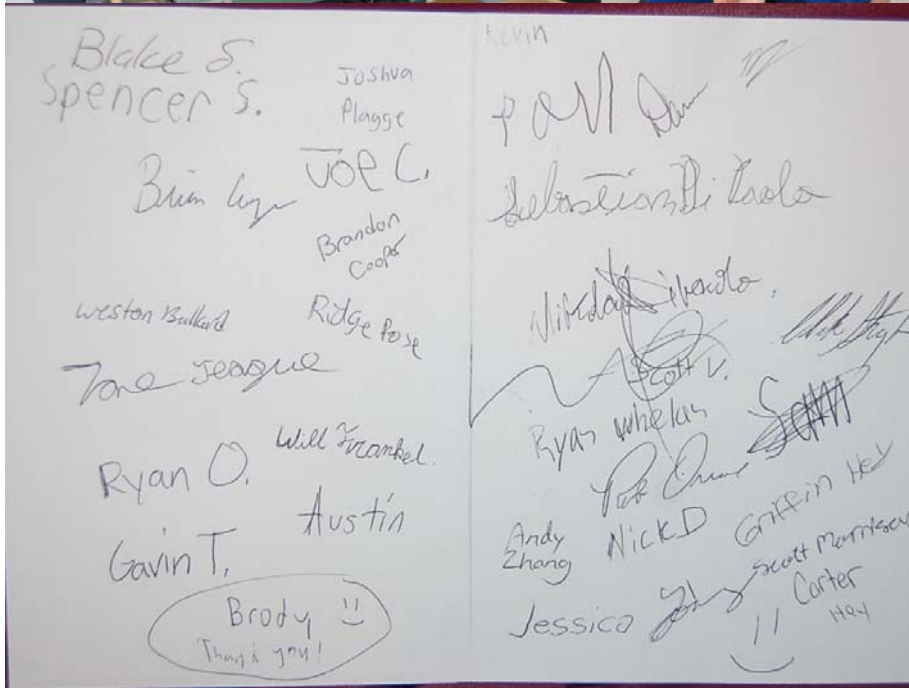 Blake S.
Spencer S.
Joshua
Plagge
Joe C.
Brian
Brandon
Cooper
Weston Bullard
Ridge Pose
Zone League
Will Frankel.
Ryan O.
Austin
Gavin T.
Brody
Thank you!
Kevin
Paul
Sebastian Di Paola
Scott V.
Ryan Whelan
Sam
Andy
Zhang
Nick D
Griffin Hey
Scott Morrison
Jessica
Carter
Hey